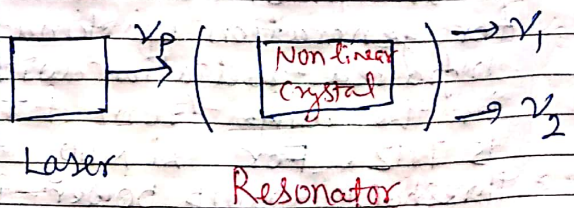 νp
ν1
Non linear
Crystal
ν2
Laser
Resonator